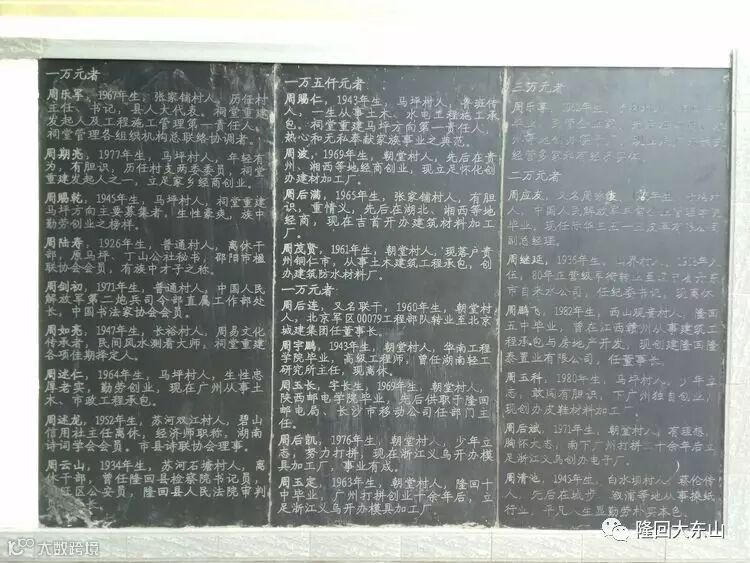 一万元者
周乐军，1967年生，张家铺村人，历任村
主任、书记，县人大代表，祠堂重建
发起人及工程施工管理第一责任人，
祠堂管理各组织机构总联络协调者。
周期亮，1977年生，马坪村人，年轻有
为，有胆识，历任村支两委委员，祠堂
重建发起人之一，立足家乡经商创业。
周赐乾，1945年生，马坪村人，祠堂重建
马坪方向主要募集者，生性豪爽，族中
勤劳创业之榜样。
周陆寿，1926年生，普通村人，离休干
部，原马坪、丁山公社秘书，邵阳市楹
联协会会员，有族中才子之称。
周剑初，1971年生，普通村人，中国人民
解放军第二炮兵司令部直属工作部处
长，中国书法家协会会员。
周如亮，1947年生，长裕村人，周易文化
传承者，民间风水测者大师，祠堂重建
各项佳期择定人。
周述仁，1964年生，马坪村人，生性忠
厚老实，勤劳创业，现在广州从事土
木、市政工程承包。
周述龙，1952年生，苏河双江村人，碧山
信用社主任离休，经济师职称，湖南
诗词学会会员。市县诗联协会理事。
周云山，1934年生，苏河石塘村人，离
休干部，曾任隆回县检察院书记员，
区公安员，隆回县人民法院审判
长。
一万五仟元者
周赐仁，1943年生，马坪村人，鲁班传
人，一生从事土木、水电工程施工承
包。祠堂重建马坪方向第一责任人，
热心和无私奉献家族事业之典范。
周波，1969年生，朝堂村人，先后在贵
州、湘西等地经商创业，现立足怀化创
办建材加工厂。
周后满，1965年生，张家铺村人，有胆
识、重情义，先后在湖北、湘西等地
经商，现在吉首开办建筑材料加工
厂。
周茂贤，1961年生，朝堂村人，现落户贵
州铜仁市，从事土木建筑工程承包，创
办建筑防水材料厂。
一万元者：
周后连，又名联干，1960年生，朝堂村
人，北京军区00079工程部队转业至北京
城建集团任董事长。
周宇鹏，1943年生，朝堂村人，华南工程
学院毕业，高级工程师，曾任湖南轻工
研究所主任，现离休。
周玉长，字长生，1969年生，朝堂村人，
陕西邮电学院毕业，先后供职于隆回
邮电局、长沙市移动公司任部门主
任。
周后凯，1976年生，朝堂村人，少年立
志，努力打拼，现在浙江义乌开办模
具加工厂，事业有成。
周玉定，1963年生，朝堂村人，隆回十
中毕业，广州打拼创业十余年后，立
足浙江义乌开办模具加工厂
三万元者：
周乐享，1962年生，
二万元者：
周应友，又名周
人，中国人民解放军
副总经理。
周继延，1936年生，
伍，80年正营级军衔转业至
市自来水公司，任纪委书记，现离休
周鹏飞，1982年生，西山观音村人，隆回
五中毕业，曾在江西赣州从事建筑工
程承包与房地产开发，现创建隆回隆
泰置业有限公司，任董事长。
周玉科，1980年生，马坪村人，少年立
志，敢闯有胆识，下广州独自创业，
现创办皮鞋材料加工厂。
周后斌，1971年生，朝堂村人，有理想，
胸怀大志，南下广州打拼二十余年后立
足浙江义乌创办电子厂。
周清沲，1945年生，白水坝村人，蔡伦传
人，先后在城步、溆浦等地从事操纸
行业，平凡人生显勤劳朴实本色。
隆回大东山
大数跨境